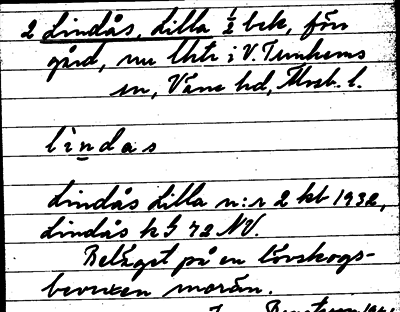 2 Lindås, Lilla ½ bek, förr
gård, nu lht i V. Tunhems
sn, Väne hd, Älvsb. l.
lìndas
Lindås Lilla n:r 2 kt 1932,
Lindås k G 72 NV.
Beläget på en lövskogs-
bevuxen morän.